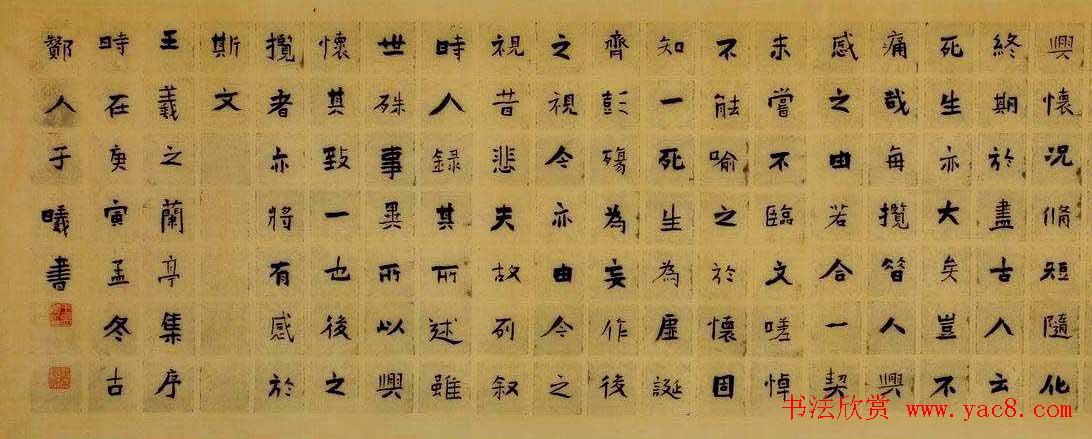 興懷况脩短隨化
終期於盡古人云
死生亦大矣豈不
痛哉每攬昔人興
感之由若合一契
未嘗不臨文嗟悼
不能喻之於懷固
知一死生為虛誕
齊彭殤為妄作後
之視今亦由今之
視昔悲夫故列叙
時人錄其所述雖
世殊事異所以興
懷其致一也後之
攬者亦將有感於
斯文
王羲之蘭亭集序
時在庚寅孟冬古
鄭人子曦書
书法欣赏 www.yac8.com